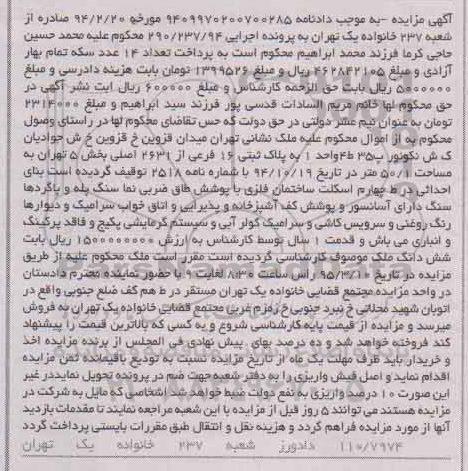 آگهی مزایده -به موجب دادنامه ۹۴۰۹۹۷۰۲۰۰۷۰۰۲۸۵ مورخه ۹۴/۲/۲۰ صادره از
شعبه ۲۳۷ خانواده یک تهران به پرونده اجرایی ۲۹۰/۲۳۷/۹۴ محکوم علیه محمد حسین
حاجی کرما فرزند محمد ابراهیم محکوم است به پرداخت تعداد ۱۴ عدد سکه تمام بهار
آزادی و مبلغ ۴۶۲۸۴۲۱۰۵ ریال و مبلغ ۱۳۹۹۵۲۶ تومان بابت هزینه دادرسی و مبلغ
۵۰۰۰۰۰۰ ریال بابت حق الزحمه کارشناس و مبلغ ۶۰۰۰۰۰ ریال ایت نشر آگهی در
حق محکوم لها خانم مریم السادات قدسی پور فرزند سید ابراهیم و مبلغ ۲۳۱۴۰۰۰
تومان به عنوان نیم عشر دولتی در حق دولت که حس تقاضای محکوم لها در راستای وصول
محکوم به از اموال محکوم علیه ملک نشانی تهران میدان قزوین خ قزوین خ ش جوادیان
ک ش نکونور پ۳۵ ط۴واحد ۱ به پلاک ثبتی ۱۶ فرعی از ۲۶۳۱ اصلی بخش ۵ تهران به
مساحت ۵۰/۱ متر در تاریخ ۹۴/۱۰/۱۹ با شماره نامه ۲۵۱۸ توقیف گردیده است بنای
احداثی در ط چهارم اسکلت ساختمان فلزی با پوشش طاق ضربی نما سنگ پله و پاگردها
سنگ دارای آسانسور و پوشش کف آشپزخانه و پذیرایی و اتاق خواب سرامیک و دیوارها
رنگ روغنی و سرویس کاشی و سرامیک کولر آبی و سیستم گرمایشی پکیج و فاقد پرکینگ
و انباری می باش و قدمت ۱ سال توسط کارشناس به ارزش ۱۵۰۰۰۰۰۰۰۰ ریال بابت
شش دانگ ملک موصوف کارشناسی گردیده است مقرر است ملک محکوم علیه از طریق
مزایده در تاریخ ۹۵/۳/۱۱ راس ساعت ۸:۳۰ لغایت ۱۰ با حضور نماینده محترم دادستان
در واحد مزایده مجتمع قضایی خانواده یک تهران مستقر در ط هم کف ضلع جنوبی واقع در
اتوبان شهید محلاتی خ نبرد جنوبی خ زمزم غربی مجتمع قضایی خانواده یک تهران به فروش
میرسد و مزایده از قیمت پایه کارشناسی شروع و به کسی که بالاترین قیمت را پیشنهاد
کند فروخته خواهد شد و ده درصد بهای پیش نهادی فی المجلس از برنده مزایده اخذ
و خریدار باید ظرف مهلت یک ماه از تاریخ مزایده نسبت به تودیع باقیمانده ثمن مزایده
اقدام نماید و اصل فیش واریزی را به دفتر شعبه جهت ضم در پرونده تحویل نمایددر غیر
این صورت ۱۰ درصد واریزی به نفع دولت ضبط خواهد شد اشخاصی که مایل به شرکت در
مزایده هستند می توانند ۵ روز قبل از مزایده با این شعبه مراجعه نمایند تا مقدمات بازدید
آنها از مورد مزایده فراهم گردد و هزینه نقل و انتقال طبق مقررات بایستی پرداخت گردد
۱۱۰/۷۹۷۴ دادورز شعبه ۲۳۷ خانواده یک تهران